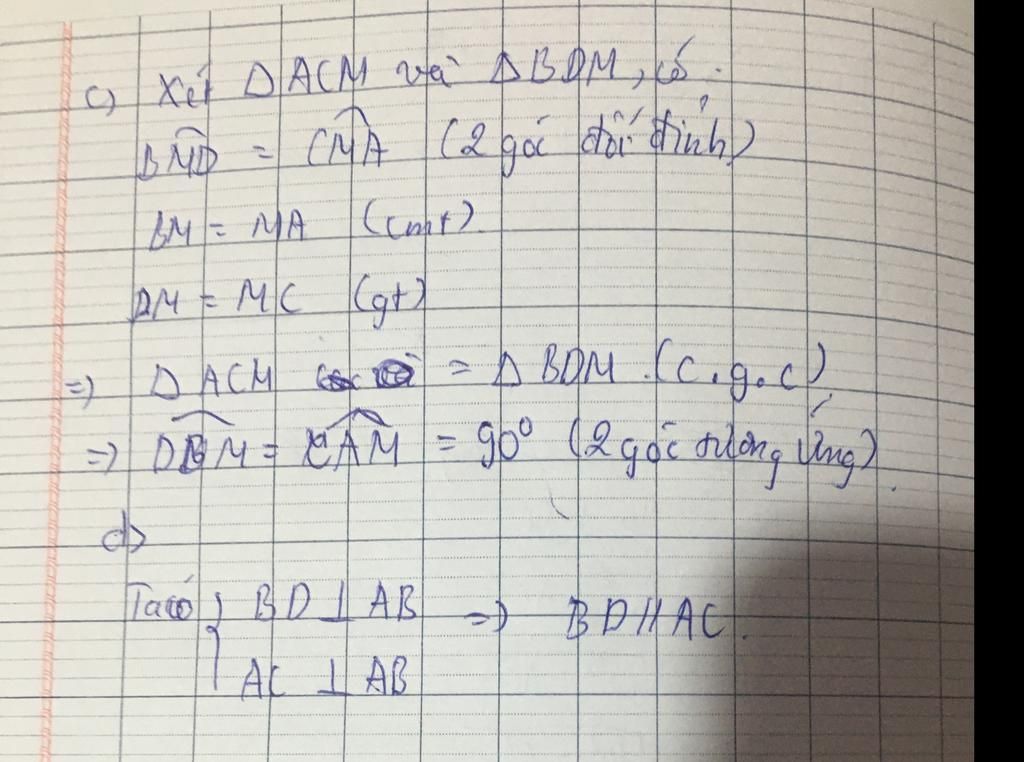 c) Xét Δ ACM và Δ BDM, có:
BMD = CMA (2 góc đối đỉnh)
BM = MA (cmt)
DM = MC (gt)
=) Δ ACM = Δ BDM. (c.g.c)
=) DBM = CAM = 90° (2 góc tương ứng).
d)
Ta có { BD ⊥ AB =) BD // AC.
AC ⊥ AB